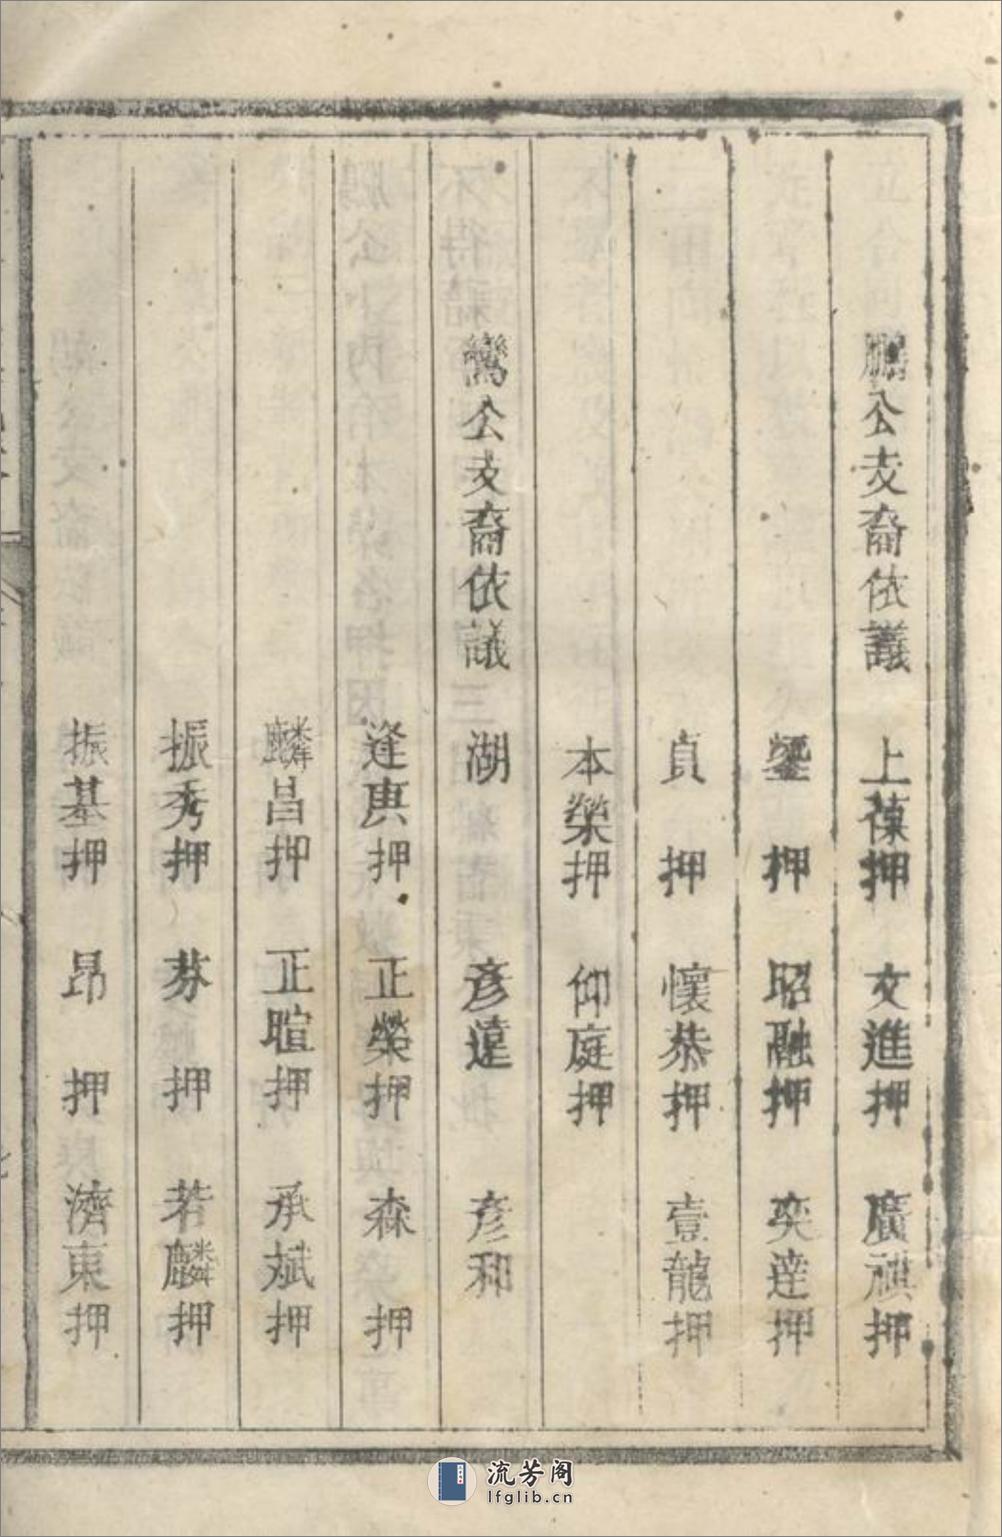 鵬公支裔依議　上葆押　文進押　廣祺押
鋆　押　昭融押　奕達押
貞　押　懷恭押　壹龍押
本榮押　仰庭押
鸞公支裔依議　湖　彥達　彥和
逢庚押　正榮押　森　押
麟昌押　正暄押　承斌押
振秀押　芬　押　若麟押
振基押　昂　押　濟東押
流芳阁
lfglib.cn